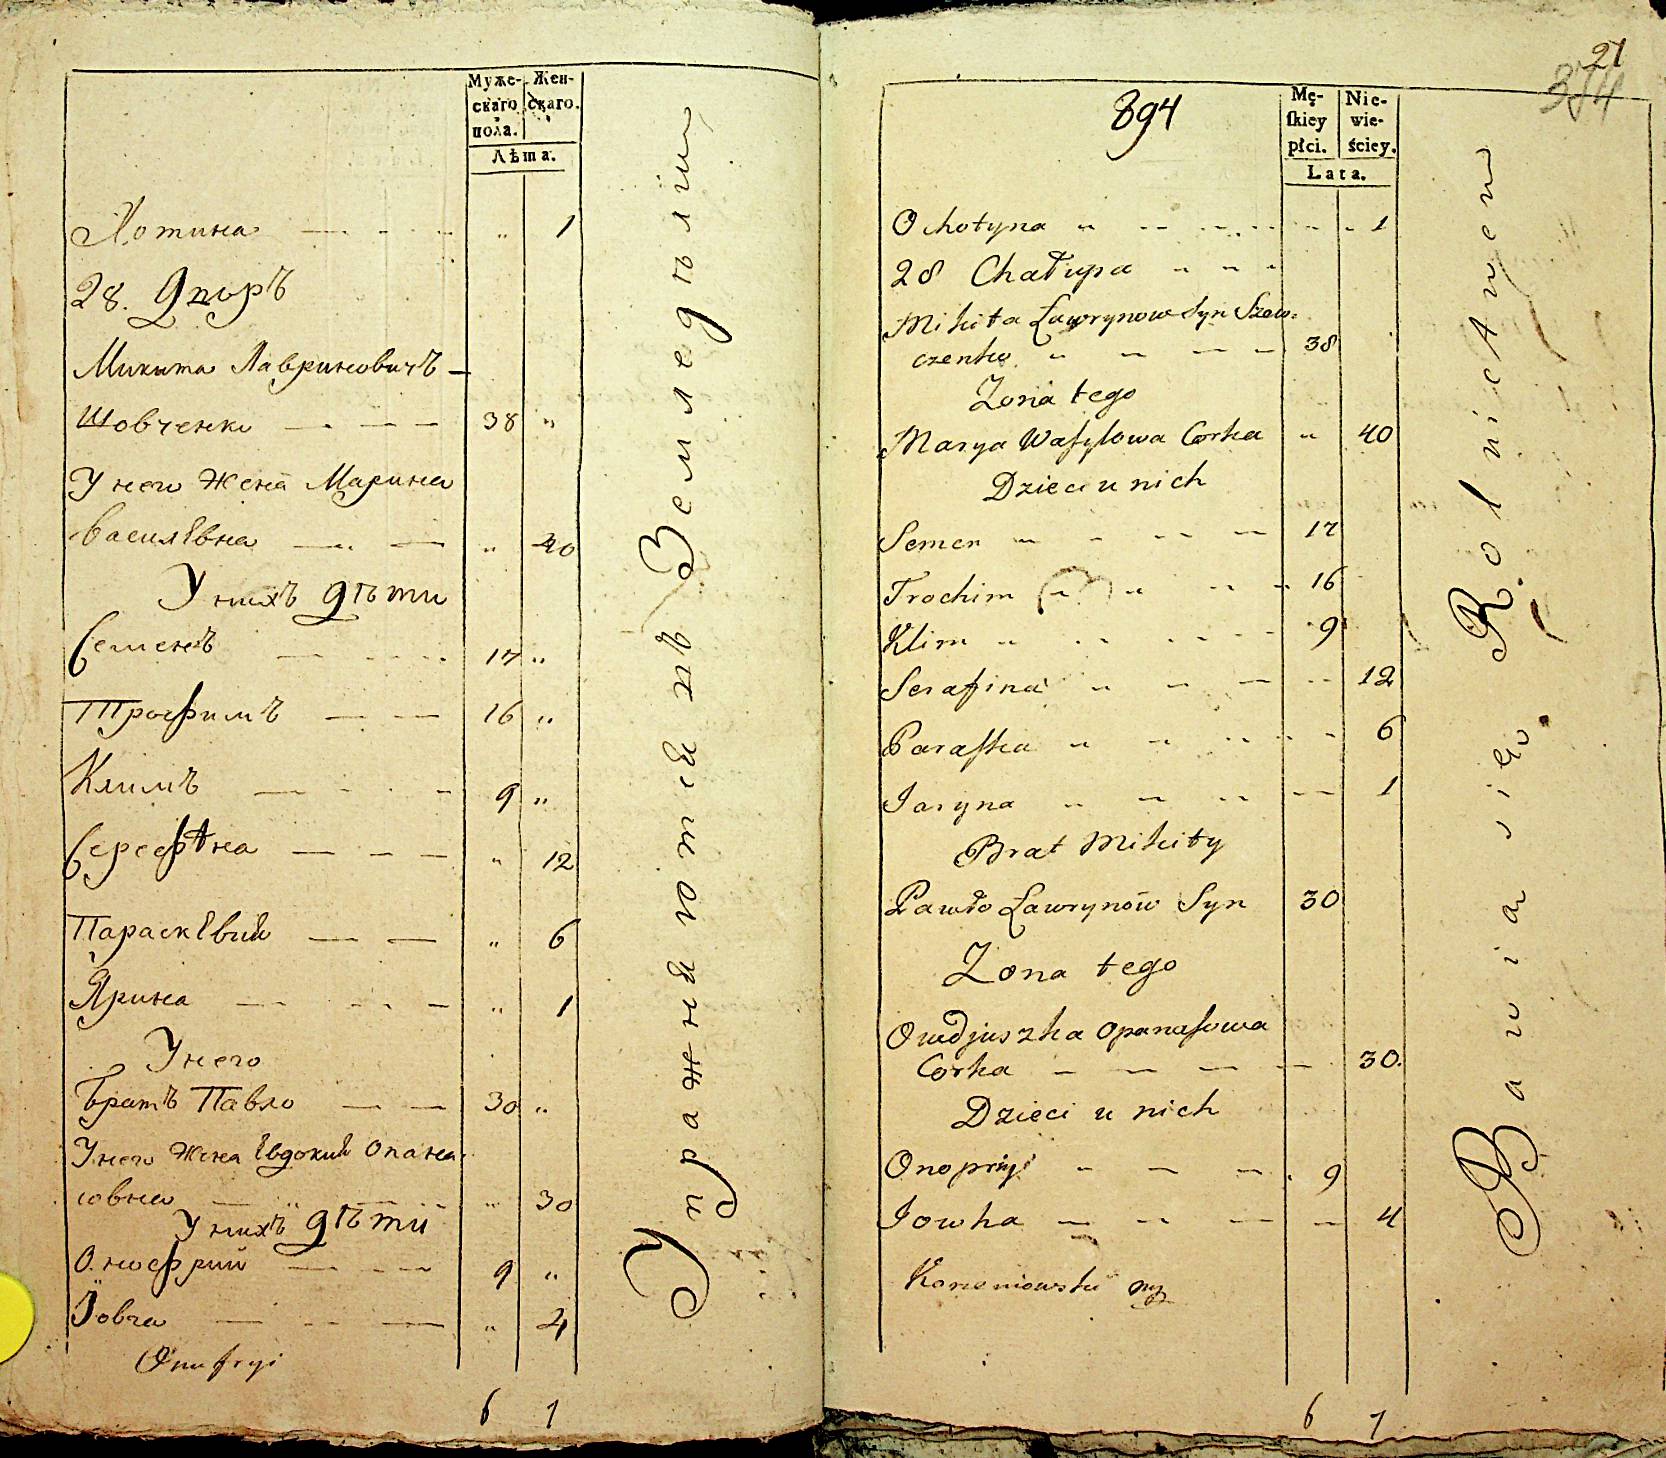 Муже- Жен-
скаго скаго.
пола.
Лѣта.
Хотина " 1
28. Дворъ
Микита Лавриновичъ
Шовченко 38 "
У него жена Марина
Василевна " 40
У нихъ дѣти
Семенъ 17 "
Трофимъ 16 "
Климъ 9 "
Серефина " 12
Параскевия " 6
Ярина " 1
У него
Братъ Павло 30 "
У него жена Евдокия Опана-
совна " 30
У нихъ дѣти
Онофрий 9 "
Їовга " 4
Onufryi
6 7
Упражняются въ Земледѣлии
21
394
894
Mę- Nie-
skiey wie-
płci. ściey.
Lata.
Ochotyna 1
28 Chałupa
Mikita Ławrynow Syn Szew=
czenko 38
Zona tego
Marya Wasylowa Corka " 40
Dzieci u nich
Semen 17
Trochim 16
Klim 9
Serafina 12
Paraska 6
Jaryna 1
Brat Mikity
Pawło Ławrynów Syn 30
Zona tego
Owdjuszka Opanasowa
Corka 30.
Dzieci u nich
Onopryi 9
Jowha 4
6 7
Bawia się Rolnictwem